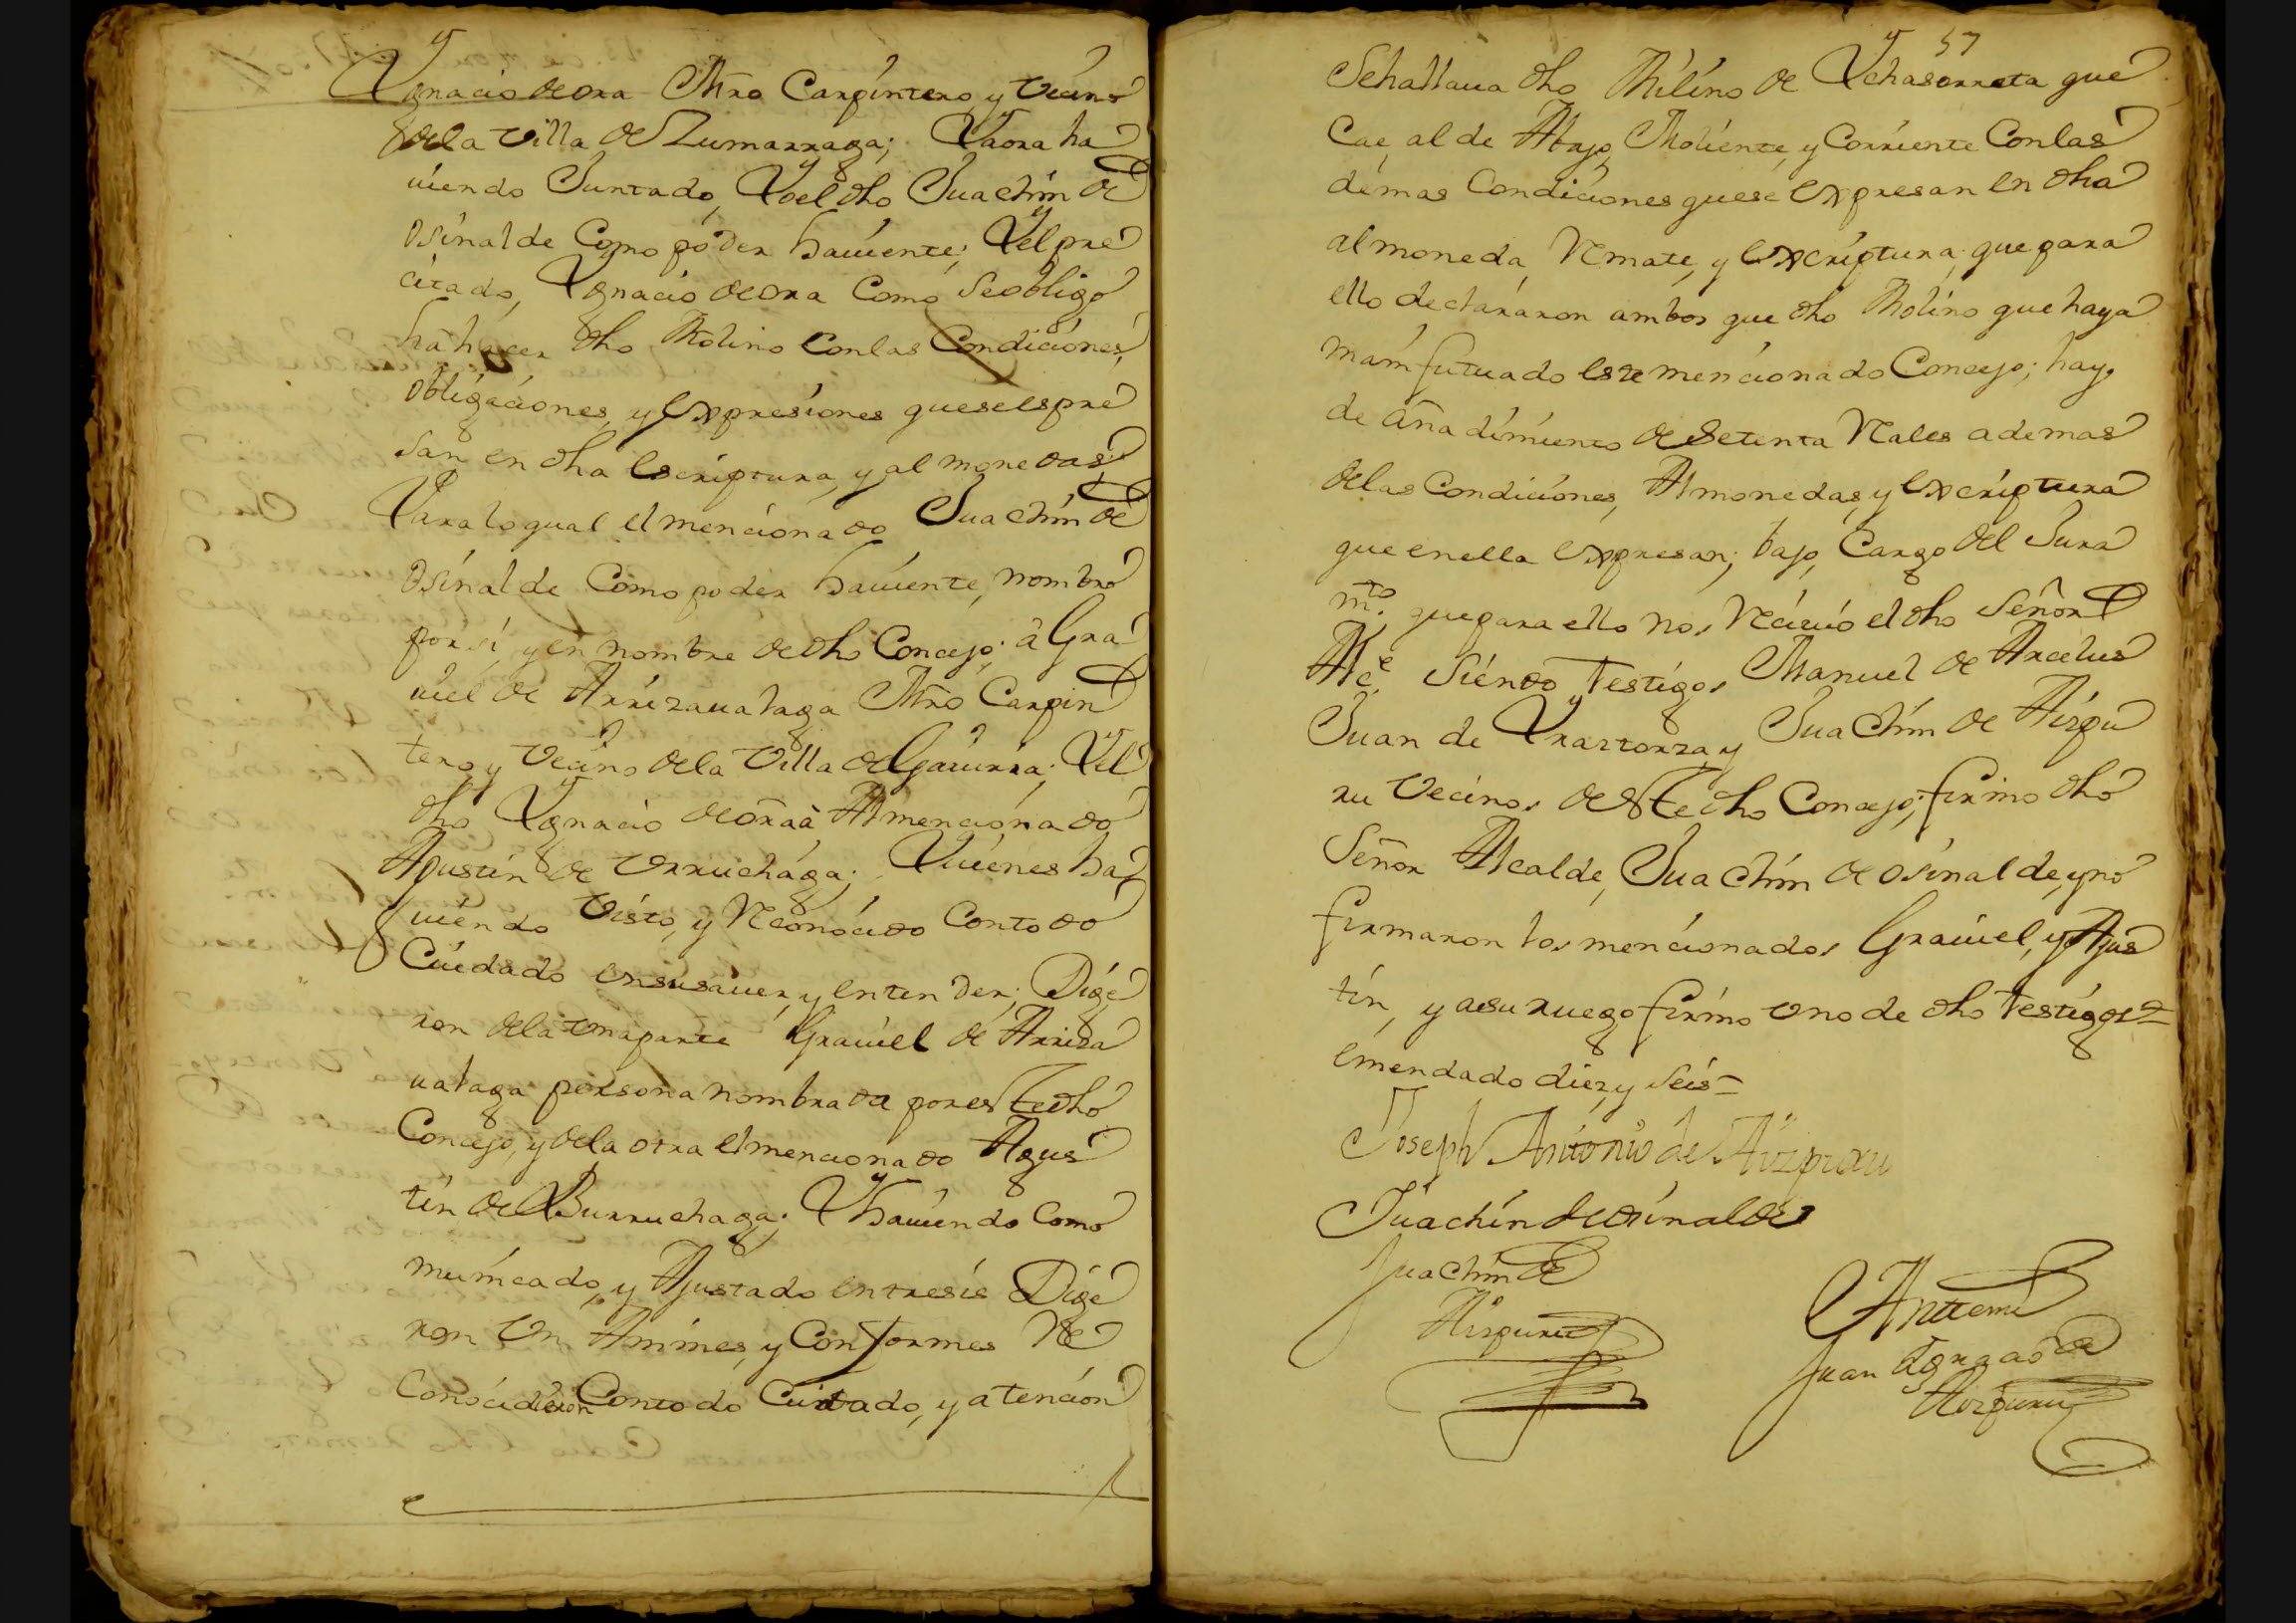 Ygnacio de ora Mro Carpintero, y Vecino
dela Villa de Zumarraga; Yaora ha
uiendo Juntado, Yo el dho Juachin de
osinalde Como poder hauiente; Y el pre
citado, Ygnacio de ora Como Se obligo
ha hacer dho Molino Con las Condiciones,
obligaciones, y Expresiones que se espre
san en dha Escriptura, y al monedas;
Para lo qual el mencionado Juachin de
osinalde Como poder hauiente, nombro
por si, y en nombre de dho Concejo; â Gra
uiel de Arrizaualaga Mro Carpin
tero, y Vecino dela Villa de Gauirria; Y el
dho Ygnacio de ora â Al mencionado
Agustin de Vrruchaga; Quienes ha
uiendo Visto, y Reconocido Con todo
Cuidado en su sauer, y entender; Dige
ron dela Una parte Grauiel de Arriza
ualaga persona nombrada por este dho
Concejo, y dela otra el mencionado Agus
tin de Burruchaga; Y hauiendo Como
municado, y Ajustado entre sis Dige
ron Vn Animes, y Conformes Re
conocidieron Con todo Cuidado, y atencion
57
Se hallaua dho Milino de Ychasorreta que
Cae, al de Abajo, Moliente, y Corriente Con las
demas Condiciones que se Expresan en dha
almoneda, Rmate, y Excriptura; que para
ello declararon ambos que dho Molino que haya
manifutuado este mencionado Concejo; hay
de aña dimiento de Setenta Rales ademas
delas Condiciones, Almonedas, y Excriptura
que en ella Expresan; bajo, Cargo del Jura
mto. que para ello nos Reciuio el dho Señor
Alce. Siendo Testigos Manuel de Arcelus
Juan de Yraztorza, y Juachin de Aizpu
ru Vecinos de este dho Concejo; firmo dho
Señor Alcalde, Juachin de osinalde, y no
firmaron los mencionados Grauiel, y Agus
tin, y a su ruego firmo Vno de dho Testigos=
emendado diez, y Seis=
Joseph Antonio de Aizpuru
Juachin de osinalde
Juachin de
Aizpuru
Antemi
Juan Ygnacio de
Aizpuru